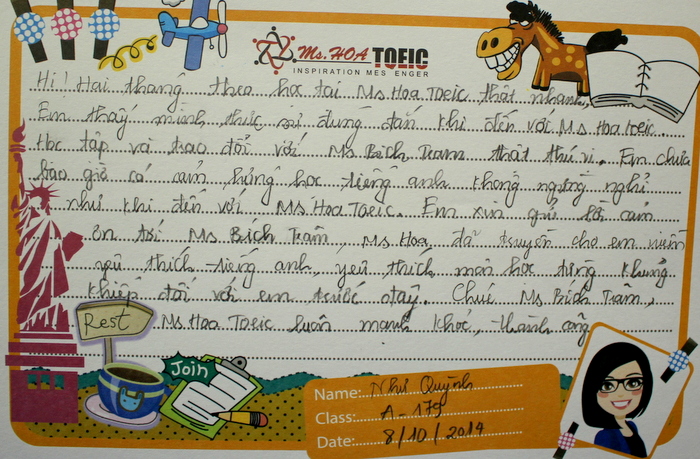 Ms.HOA TOEIC
INSPIRATION MES ENGER
Hi! Hai tháng theo học tại Ms Hoa Toeic thật nhanh,
Em thấy mình thực sự đúng đắn khi đến với Ms Hoa Toeic.
Học tập và trao đổi với Ms Bích Trâm thật thú vị. Em chưa
bao giờ có cảm hứng học tiếng anh không ngừng nghỉ
như khi đến với Ms Hoa Toeic. Em xin gửi lời cảm
ơn tới Ms Bích Trâm, Ms Hoa, đã truyền cho em niềm
yêu thích tiếng anh, yêu thích môn học từng khủng
khiếp đối với em trước đây. Chúc Ms Bích Trâm,
Rest Ms Hoa Toeic luôn mạnh khỏe, thành công
Join
Name: Như Quỳnh
Class: A-179
Date: 8/10/2014